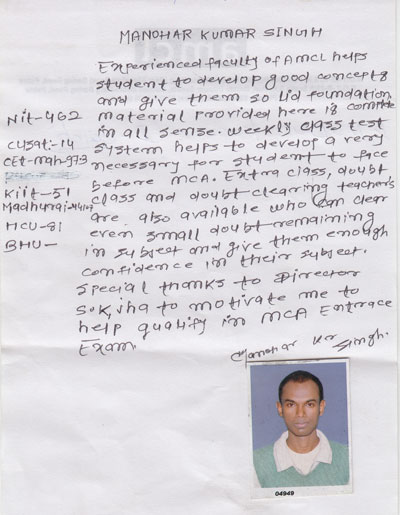 MANOHAR KUMAR SINGH
Experienced faculty of AMCL helps
student to develop good concepts
and give them so lid foundation
material provided here is complete
in all sense. weekly class test
system helps to develop a very
necessary for student to face
before MCA. Extra class, doubt
class and doubt clearing teacher's
are also available who can clear
even small doubt remaining
in subject and give them enough
confidence in their subject.
special thanks to Director
S.K. Jha to motivate me to
help qualify in MCA Entrace
Exam.
Nit-462
CUSat:-14
Cet-mah-973
Kiit-51
Madhurai-
HCU-81
BHU-
Manohar Kr Singh.
04949